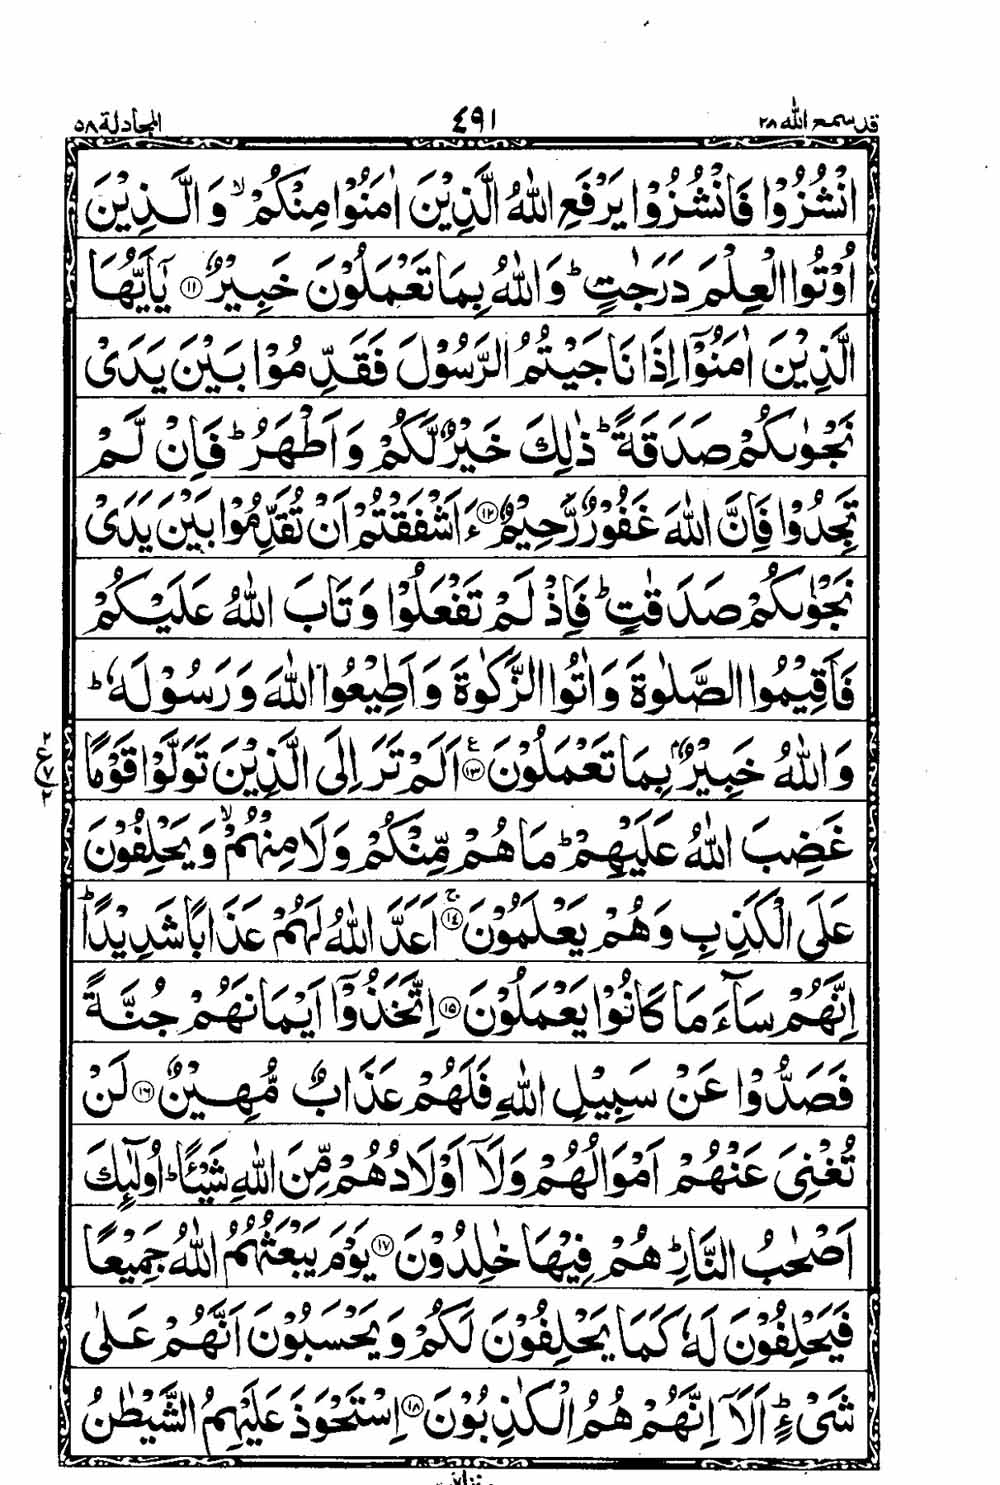 قد سمع الله ٢٨ ٤٩١ المجادلة ٥٨
انْشُزُوْا فَانْشُزُوْا يَرْفَعِ اللّٰهُ الَّذِيْنَ اٰمَنُوْا مِنْكُمْ ۙ وَ الَّذِيْنَ
اُوْتُوا الْعِلْمَ دَرَجٰتٍ ؕ وَ اللّٰهُ بِمَا تَعْمَلُوْنَ خَبِيْرٌ ۝۱۱ يٰۤاَيُّهَا
الَّذِيْنَ اٰمَنُوْۤا اِذَا نَاجَيْتُمُ الرَّسُوْلَ فَقَدِّمُوْا بَيْنَ يَدَیْ
نَجْوٰىكُمْ صَدَقَةً ؕ ذٰلِكَ خَيْرٌ لَّكُمْ وَ اَطْهَرُ ؕ فَاِنْ لَّمْ
تَجِدُوْا فَاِنَّ اللّٰهَ غَفُوْرٌ رَّحِيْمٌ ۝۱۲ ءَاَشْفَقْتُمْ اَنْ تُقَدِّمُوْا بَيْنَ يَدَیْ
نَجْوٰىكُمْ صَدَقٰتٍ ؕ فَاِذْ لَمْ تَفْعَلُوْا وَ تَابَ اللّٰهُ عَلَيْكُمْ
فَاَقِيْمُوا الصَّلٰوةَ وَ اٰتُوا الزَّكٰوةَ وَ اَطِيْعُوا اللّٰهَ وَ رَسُوْلَهٗ ؕ
وَ اللّٰهُ خَبِيْرٌۢ بِمَا تَعْمَلُوْنَ ۝۱۳ ع اَلَمْ تَرَ اِلَى الَّذِيْنَ تَوَلَّوْا قَوْمًا
٢ ع ٧ ٢
غَضِبَ اللّٰهُ عَلَيْهِمْ ؕ مَا هُمْ مِّنْكُمْ وَ لَا مِنْهُمْ ۙ وَ يَحْلِفُوْنَ
عَلَى الْكَذِبِ وَ هُمْ يَعْلَمُوْنَ ۝۱۴ ۚ اَعَدَّ اللّٰهُ لَهُمْ عَذَابًا شَدِيْدًا ؕ
اِنَّهُمْ سَآءَ مَا كَانُوْا يَعْمَلُوْنَ ۝۱۵ اِتَّخَذُوْۤا اَيْمَانَهُمْ جُنَّةً
فَصَدُّوْا عَنْ سَبِيْلِ اللّٰهِ فَلَهُمْ عَذَابٌ مُّهِيْنٌ ۝۱۶ لَنْ
تُغْنِیَ عَنْهُمْ اَمْوَالُهُمْ وَ لَاۤ اَوْلَادُهُمْ مِّنَ اللّٰهِ شَيْـًٔا ؕ اُولٰٓىِٕكَ
اَصْحٰبُ النَّارِ ؕ هُمْ فِيْهَا خٰلِدُوْنَ ۝۱۷ يَوْمَ يَبْعَثُهُمُ اللّٰهُ جَمِيْعًا
فَيَحْلِفُوْنَ لَهٗ كَمَا يَحْلِفُوْنَ لَكُمْ وَ يَحْسَبُوْنَ اَنَّهُمْ عَلٰى
شَیْءٍ ؕ اَلَاۤ اِنَّهُمْ هُمُ الْكٰذِبُوْنَ ۝۱۸ اِسْتَحْوَذَ عَلَيْهِمُ الشَّيْطٰنُ